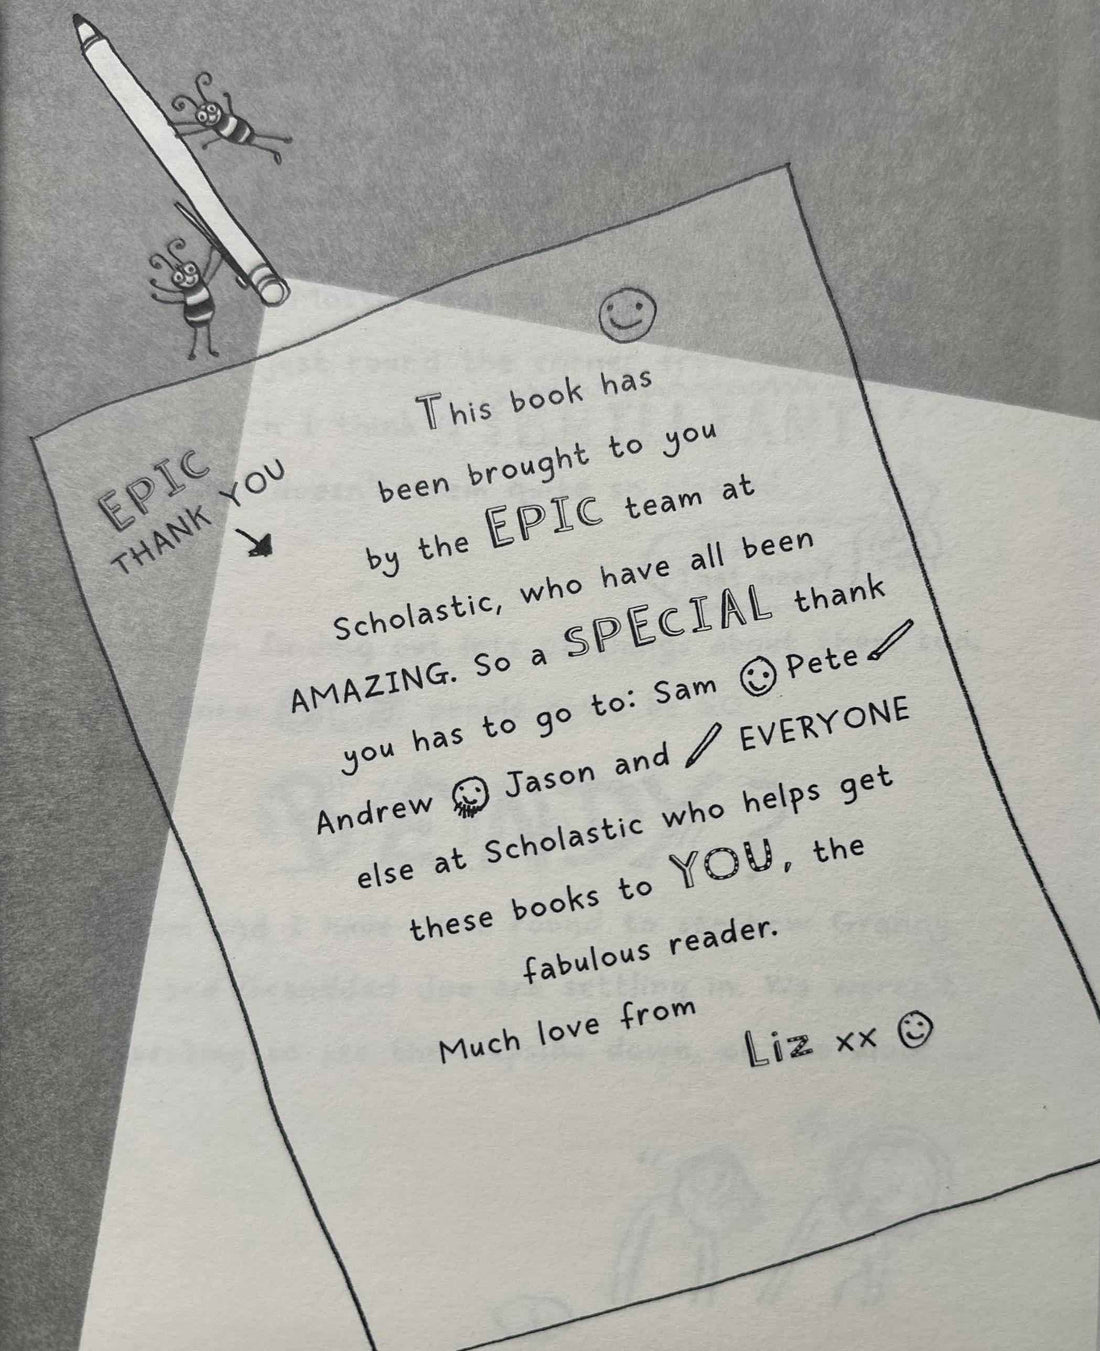 EPIC
THANK YOU
This book has
been brought to you
by the EPIC team at
Scholastic, who have all been
AMAZING. So a SPECIAL thank
you has to go to: Sam Pete
Andrew Jason and EVERYONE
else at Scholastic who helps get
these books to YOU, the
fabulous reader.
Much love from
Liz xx